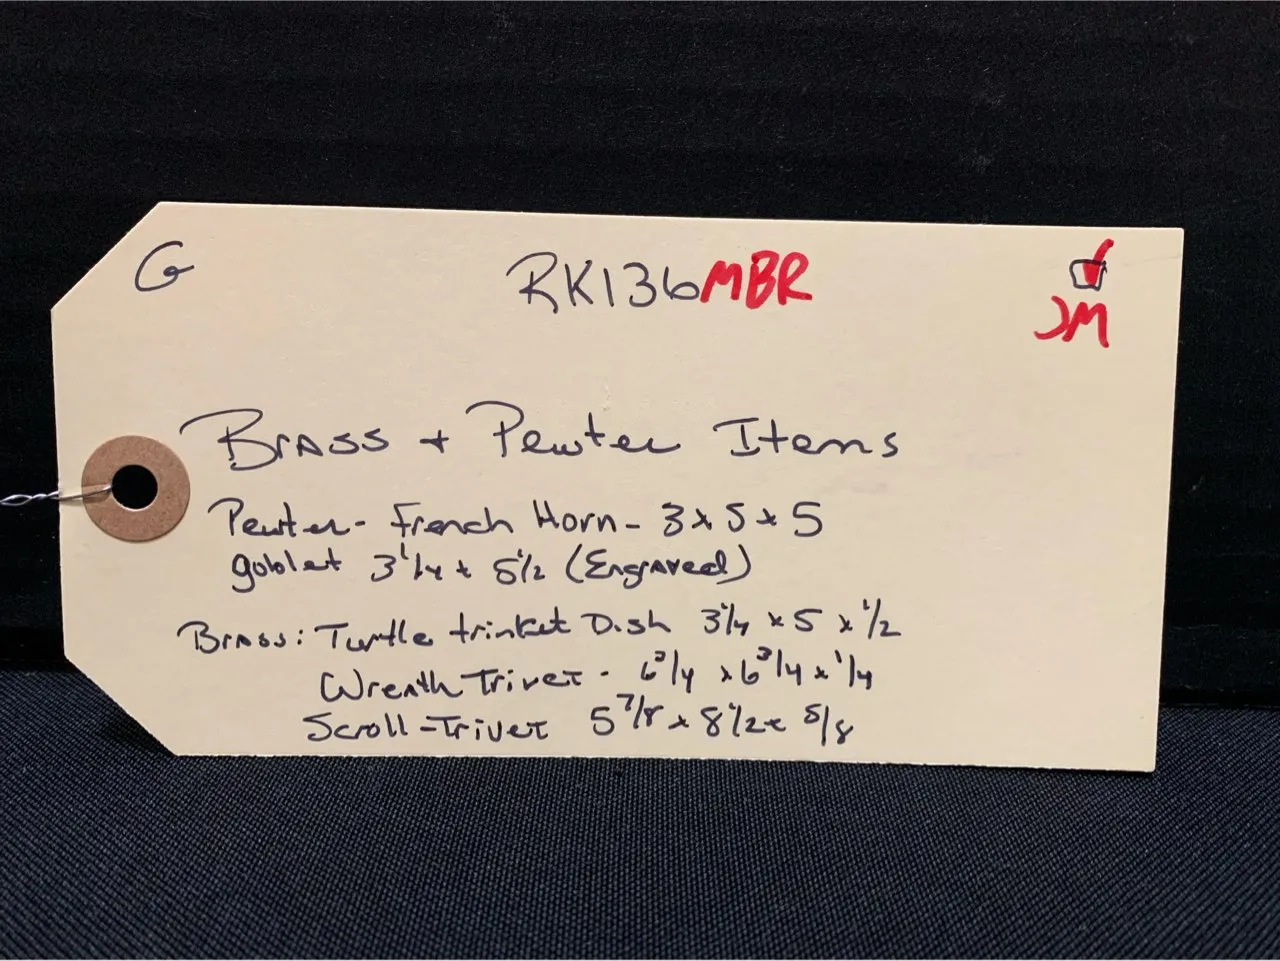 G RK136MBR
JM
Brass + Pewter Items
Pewter - French Horn - 3 x 5 x 5
goblet 3 1/4 x 5 1/2 (Engraved)
Brass: Turtle trinket Dish 3 1/4 x 5 x 1/2
Wreath Trivet - 6 3/4 x 6 3/4 x 1/4
Scroll-Trivet 5 7/8 x 8 1/2 x 5/8